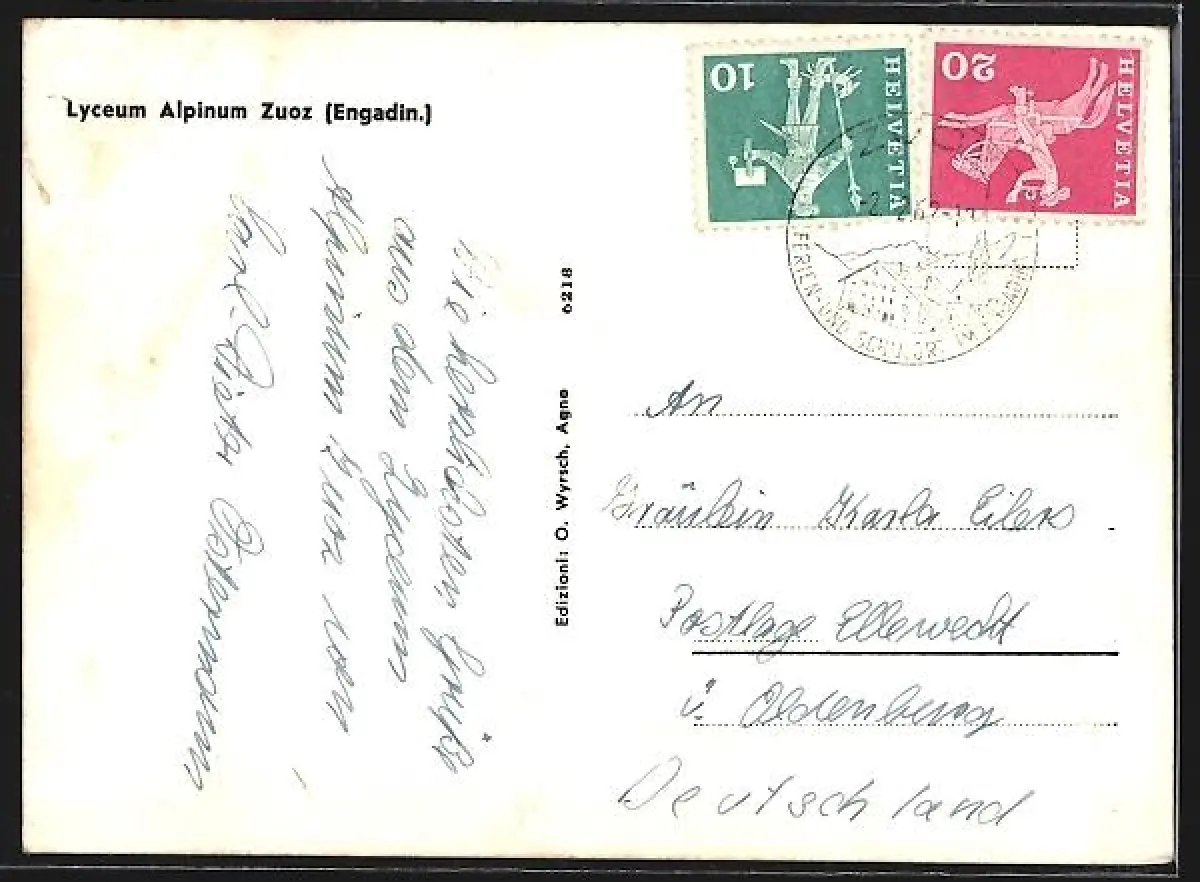 Lyceum Alpinum Zuoz (Engadin.)
10
HELVETIA
20
HELVETIA
ZUOZ
FERIEN- UND SCHULORT IM ENGADIN
Die herzlichsten Grüße
aus dem Lyceum
Alpinum Zuoz von
Ostermann
Edizioni: O. Wyrsch, Agno 6218
An
Fräulein Karla Eilers
Postlage Ellerwecht
i. Oldenburg
Deutschland